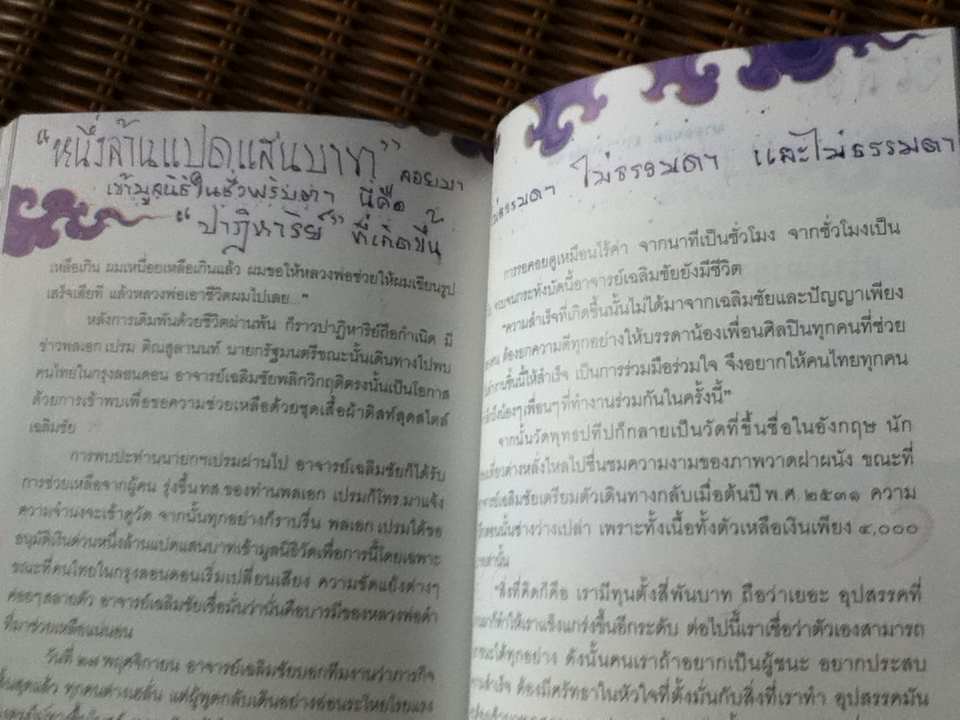 "หนึ่งล้านแปดแสนบาท" ลอยมา
เข้ามูลนิธิในชั่วพริบตา นี่คือ
"ปาฏิหาริย์" ที่เกิดขึ้น
เหลือเกิน ผมเหนื่อยเหลือเกินแล้ว ผมขอให้หลวงพ่อช่วยให้ผมเขียนรูป
เสร็จเสียที แล้วหลวงพ่อเอาชีวิตผมไปเลย..."
หลังการเดิมพันด้วยชีวิตผ่านพ้น ก็ราวปาฏิหาริย์ถือกำเนิด มี
ข่าวพลเอก เปรม ติณสูลานนท์ นายกรัฐมนตรีขณะนั้นเดินทางไปพบ
คนไทยในกรุงลอนดอน อาจารย์เฉลิมชัยพลิกวิกฤติตรงนั้นเป็นโอกาส
ด้วยการเข้าพบเพื่อขอความช่วยเหลือด้วยชุดเสื้อผ้าดิสท์สุดสไตล์
เฉลิมชัย
การพบปะท่านนายกฯเปรมผ่านไป อาจารย์เฉลิมชัยก็ได้รับ
การช่วยเหลือจากผู้คน รุ่งขึ้นทส.ของท่านพลเอก เปรมก็โทร.มาแจ้ง
ความจำนงจะเข้าดูวัด จากนั้นทุกอย่างก็ราบรื่น พลเอก เปรมได้ขอ
อนุมัติเงินด่วนหนึ่งล้านแปดแสนบาทเข้ามูลนิธิวัดเพื่อการนี้โดยเฉพาะ
ขณะที่คนไทยในกรุงลอนดอนเริ่มเปลี่ยนเสียง ความขัดแย้งต่างๆ
ค่อยๆสลายตัว อาจารย์เฉลิมชัยเชื่อมั่นว่านั่นคือบารมีของหลวงพ่อดำ
ที่มาช่วยเหลือแน่นอน
วันที่ ๒๗ พฤศจิกายน อาจารย์เฉลิมชัยบอกทีมงานว่าภารกิจ
สิ้นสุดแล้ว ทุกคนต่างเฮลั่น แต่ผู้พูดกลับเดินอย่างอ่อนระโหยโรยแรง
ไม่ธรรมดา และไม่ธรรมดา
การรอคอยดูเหมือนไร้ค่า จากนาทีเป็นชั่วโมง จากชั่วโมงเป็น
จวบจนกระทั่งบัดนี้อาจารย์เฉลิมชัยยังมีชีวิต
"ความสำเร็จที่เกิดขึ้นนั้นไม่ได้มาจากเฉลิมชัยและปัญญาเพียง
ต้องยกความดีทุกอย่างให้บรรดาน้องเพื่อนศิลปินทุกคนที่ช่วย
ทำงานชิ้นนี้ให้สำเร็จ เป็นการร่วมมือร่วมใจ จึงอยากให้คนไทยทุกคน
ถึงน้องๆเพื่อนๆที่ทำงานร่วมกันในครั้งนี้"
จากนั้นวัดพุทธปทีปก็กลายเป็นวัดที่ขึ้นชื่อในอังกฤษ นัก
ต่างหลั่งไหลไปชื่นชมความงามของภาพวาดฝาผนัง ขณะที่
เฉลิมชัยเตรียมตัวเดินทางกลับเมื่อต้นปี พ.ศ ๒๕๓๑ ความ
ตอนนั้นช่างว่างเปล่า เพราะทั้งเนื้อทั้งตัวเหลือเงินเพียง ๔,๐๐๐
เท่านั้น
"สิ่งที่คิดก็คือ เรามีทุนตั้งสี่พันบาท ถือว่าเยอะ อุปสรรคที่
ก็ทำให้เราแข็งแกร่งขึ้นอีกระดับ ต่อไปนี้เราเชื่อว่าตัวเองสามารถ
ได้ทุกอย่าง ดังนั้นคนเราถ้าอยากเป็นผู้ชนะ อยากประสบ
ต้องมีศรัทธาในหัวใจที่ตั้งมั่นกับสิ่งที่เราทำ อุปสรรคมัน